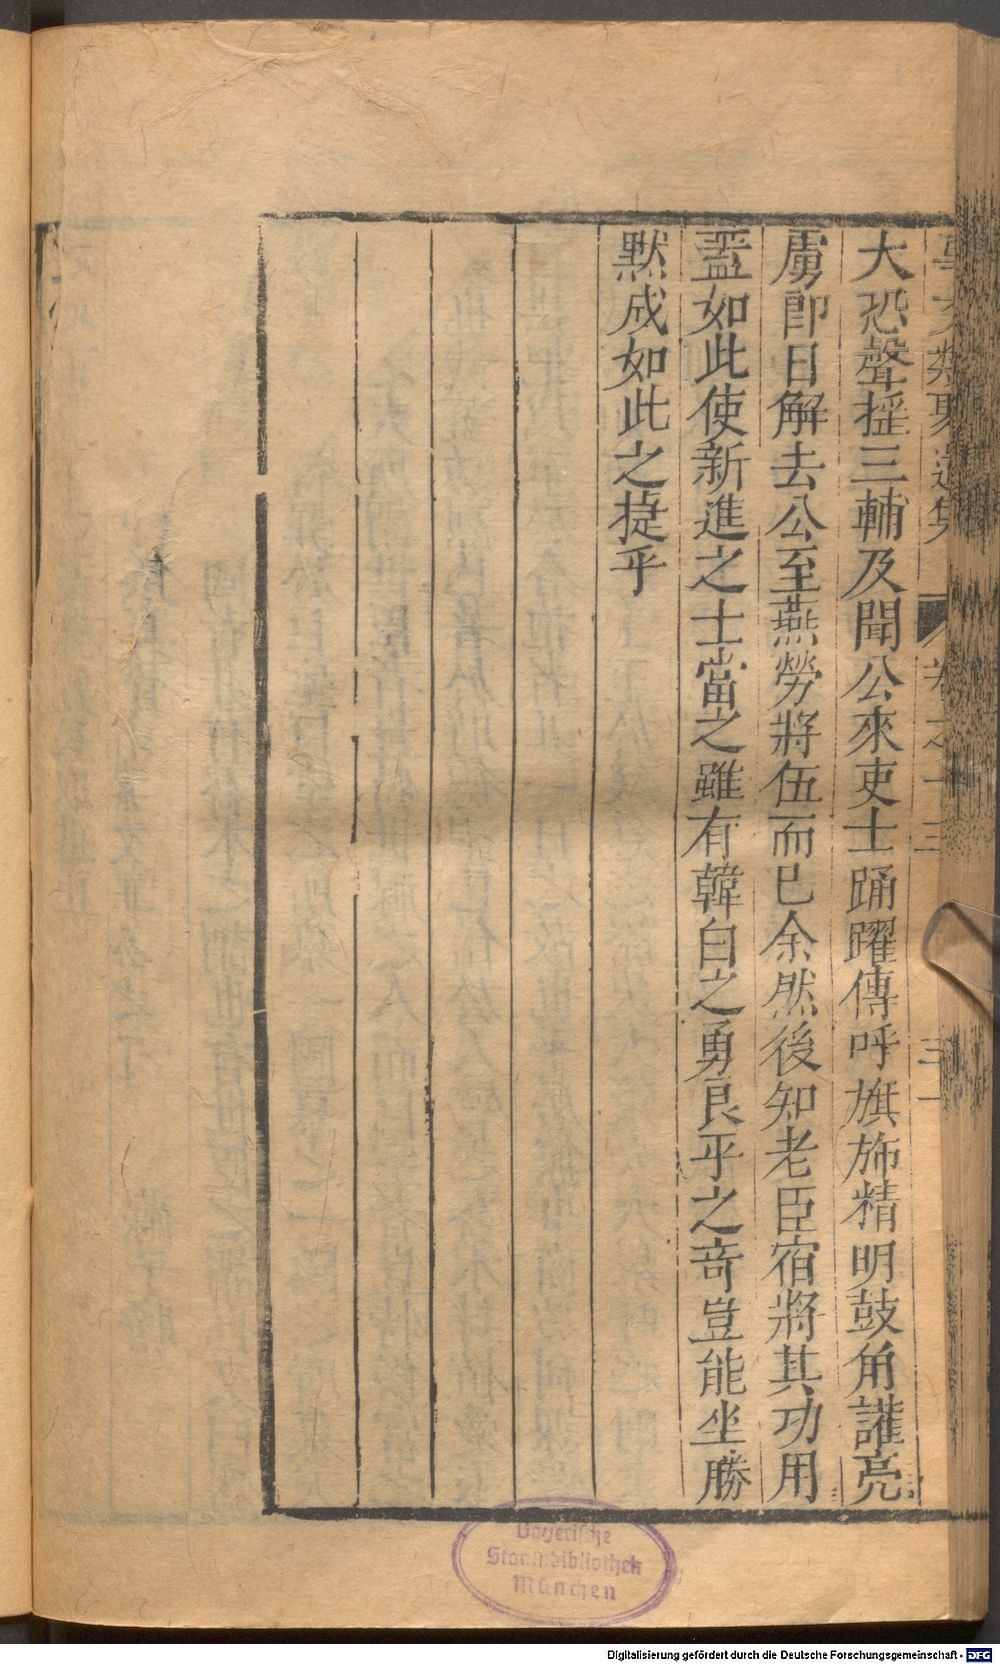 事文類聚遺集 卷之十三 三十一
大恐聲搖三輔及聞公來吏士踊躍傳呼旗旆精明鼓角讙亮
虜即日解去公至燕勞將伍而已余然後知老臣宿將其功用
蓋如此使新進之士當之雖有韓白之勇良平之奇豈能坐勝
默成如此之捷乎
Bayerische
Staatsbibliothek
München
Digitalisierung gefördert durch die Deutsche Forschungsgemeinschaft - DFG